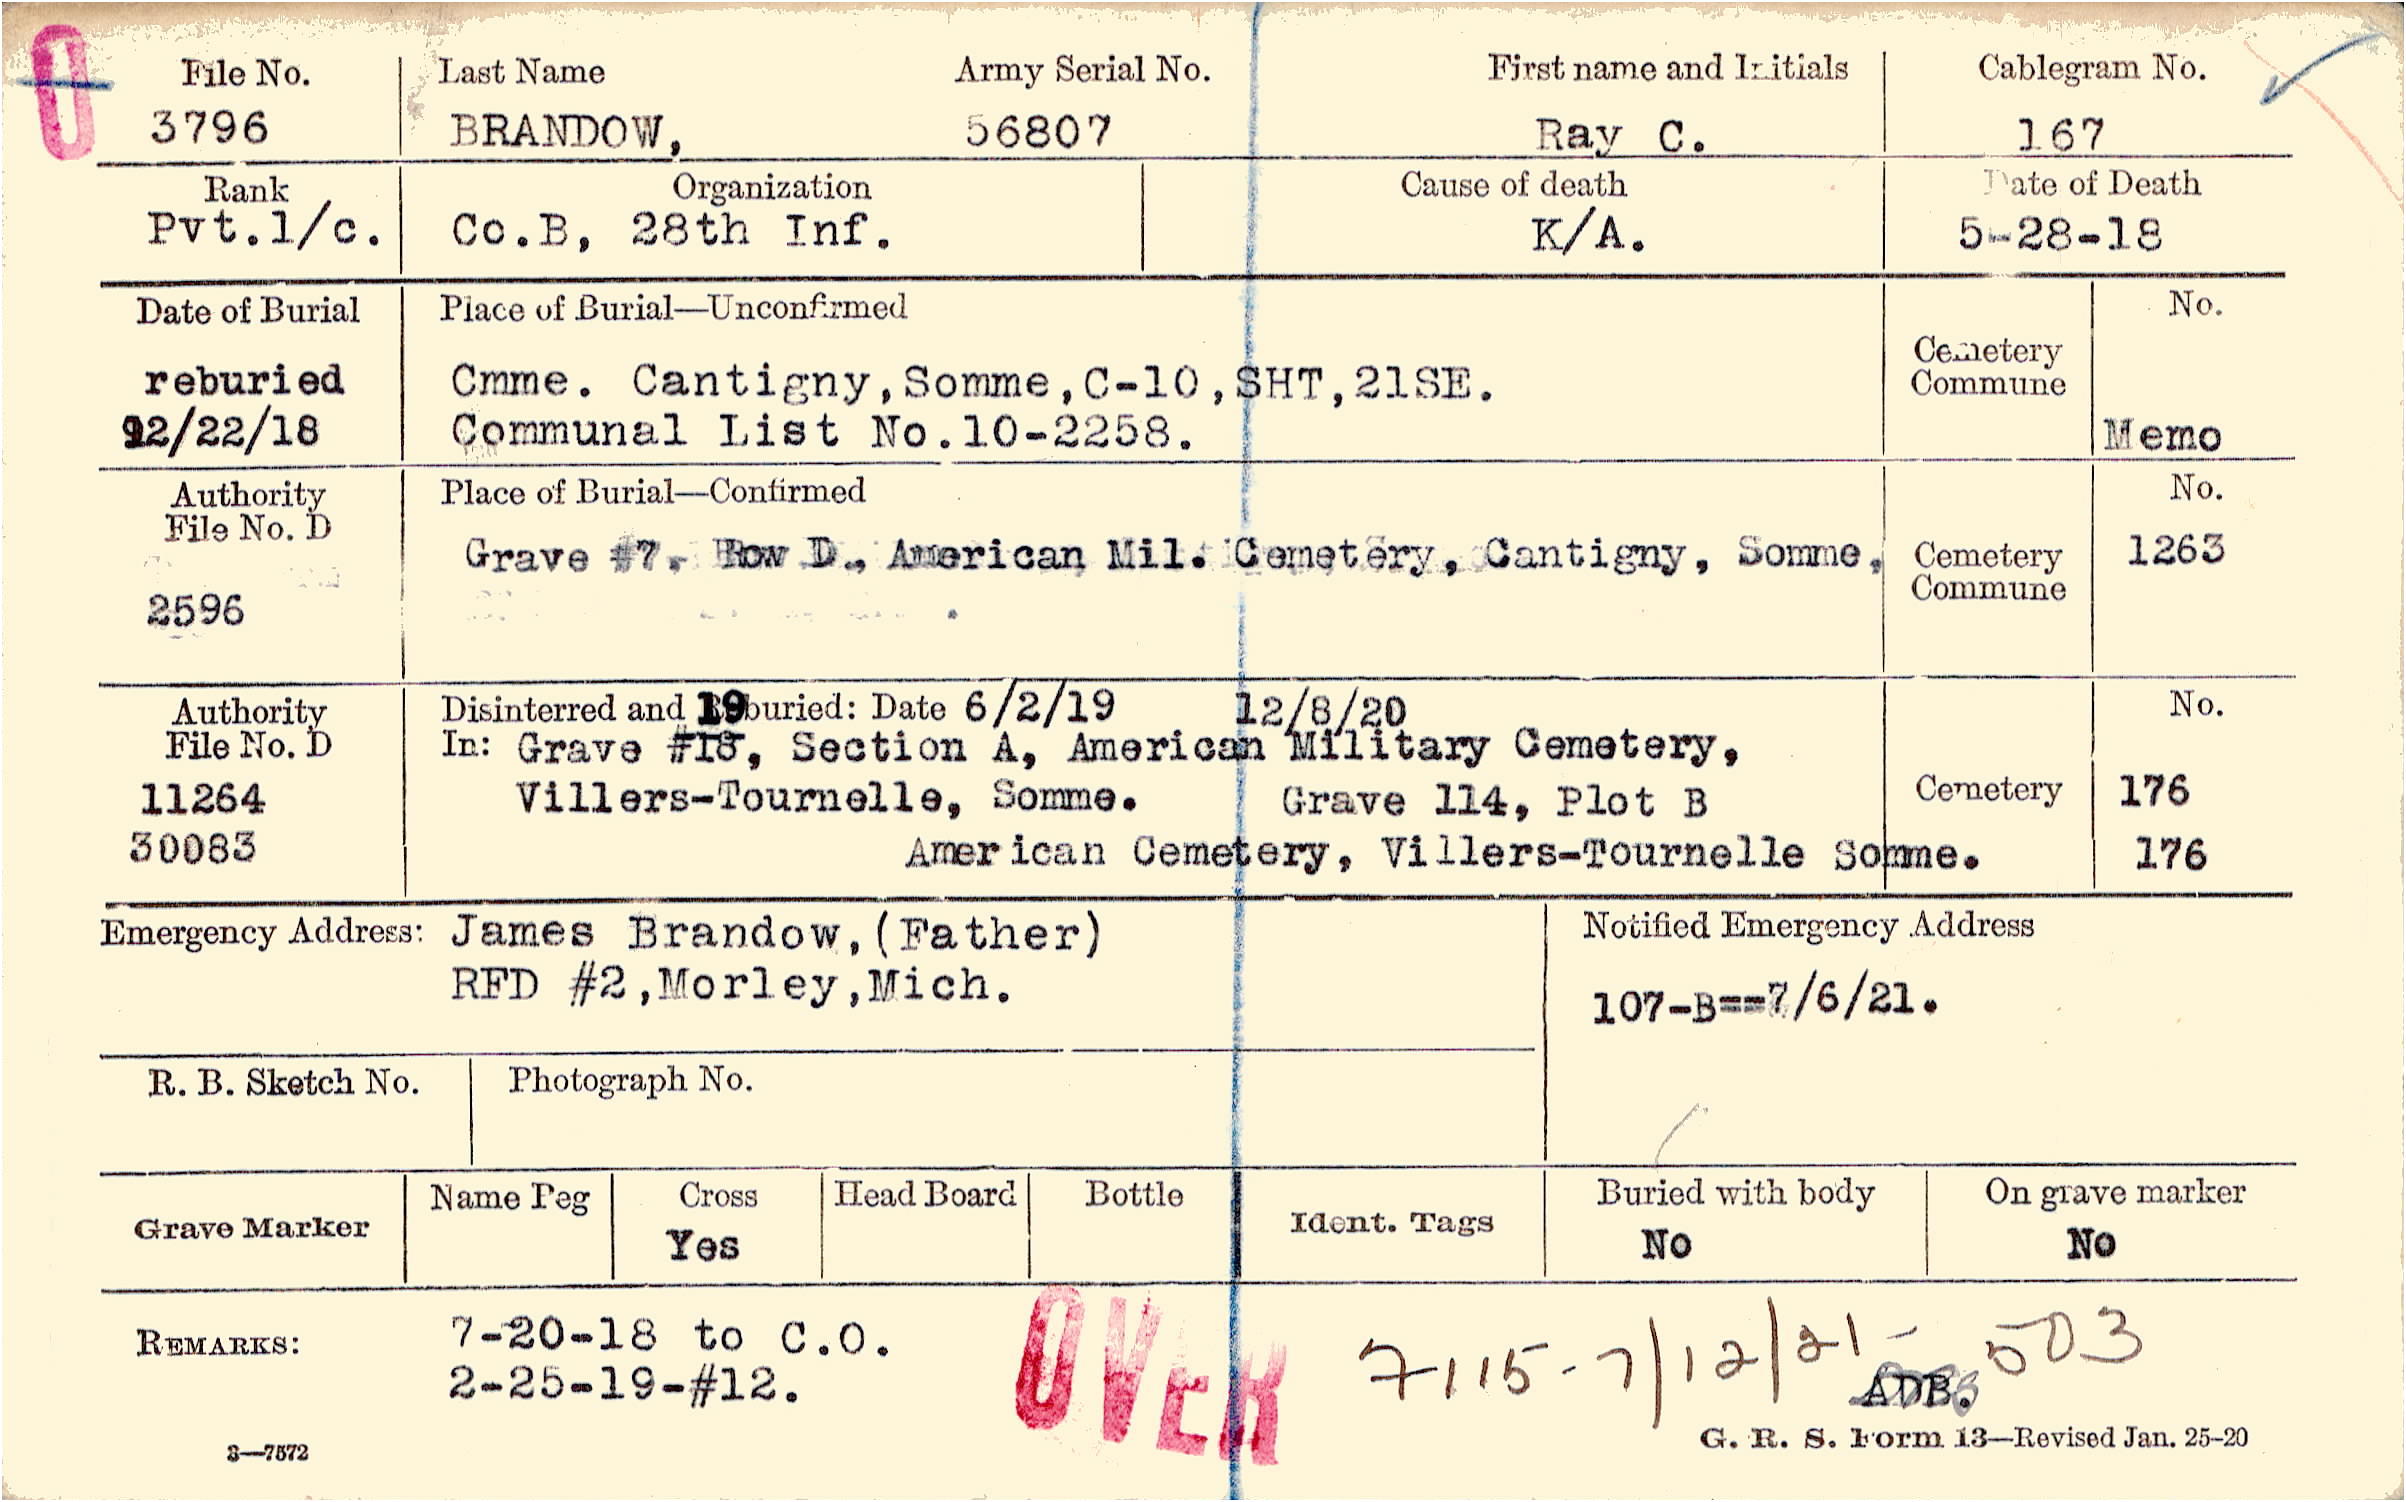 O
File No. Last Name Army Serial No. First name and Initials Cablegram No.
3796 BRANDOW, 56807 Ray C. 167
Rank Organization Cause of death Date of Death
Pvt.1/c. Co.B, 28th Inf. K/A. 5-28-18
Date of Burial Place of Burial—Unconfirmed No.
Cemetery
Commune
reburied Cmme. Cantigny,Somme,C-10,SHT,21SE.
12/22/18 Communal List No.10-2258. Memo
Authority Place of Burial—Confirmed No.
File No. D
Grave #7. Row D., American Mil. Cemetery, Cantigny, Somme. Cemetery 1263
Commune
2596
Authority Disinterred and Reburied: Date 6/2/19 12/8/20 No.
19
File No. D In: Grave #18, Section A, American Military Cemetery,
11264 Villers-Tournelle, Somme. Grave 114, Plot B Cemetery 176
30083 American Cemetery, Villers-Tournelle Somme. 176
Emergency Address: James Brandow,(Father) Notified Emergency Address
RFD #2,Morley,Mich. 107-B==7/6/21.
R. B. Sketch No. Photograph No.
Grave Marker Name Peg Cross Head Board Bottle Ident. Tags Buried with body On grave marker
Yes No No
REMARKS: 7-20-18 to C.O.
2-25-19-#12.
OVER
7115-7/12/21- 503
ADB.
3—7572 G. R. S. Form 13—Revised Jan. 25-20